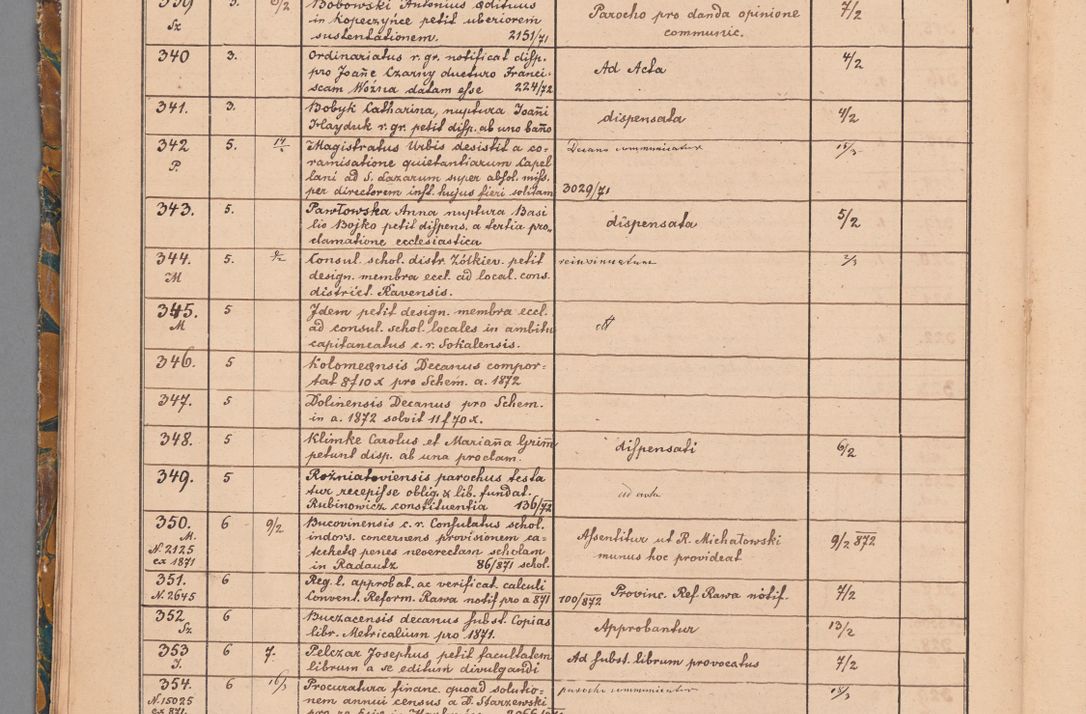 339 3. 6/2 Bobowski Antonius ædituus
Sz in Kopeczyńce petit uberiorem
sustentationem. 2151/71
Parocho pro danda opinione
communic.
7/2
340 3. Ordinariatus r. gr. notificat disp.
pro Joañe Czarny ducturo Franci-
scam Woźna datam esse 224/72
Ad Acta
4/2
341. 3. Bobyk Catharina, nuptura Joañi
Hayduk r. gr. petit disp. ab uno baño
dispensata
4/2
342 5. Magistratus Urbis desistit a co-
P. ramisatione quietantiarum Capel
lani ad S. Lazarum super absol. miss.
per directorem inst. hujus fieri solitam
Decano communicatur
3029/71
15/3
343. 5. Pawłowska Anna nuptura Basi
lio Bojko petit dispens. a tertia pro-
clamatione ecclesiastica
dispensata
5/2
344. 5. Consul. schol. distr. Żółkiev. petit
M design. membra eccl. ad local. cons.
district. Ravensis.
345. 5 Idem petit design. membra eccl.
M ad consul. schol. locales in ambitu
capitaneatus c. r. Sokalensis.
346. 5 Kolomeensis Decanus compor-
tat 8 f 10 x pro Schem. a. 1872
347. 5 Dolinensis Decanus pro Schem.
in a. 1872 solvit 11 f 70 x.
348. 5 Klimke Carolus et Mariaña Grim̃
petunt disp. ab una proclam.
dispensati
6/2
349. 5 Rożniatoviensis parochus testa
tur recepisse oblig. & lib. fundat.
Rubinowicz constituentia 136/72
ad acta
350. 6 9/2 Bucovinensis c. r. Consulatus schol.
M. indors. concernens provisionem ca-
N. 2125 techetæ penes neoerectam scholam
ex 1871 in Radautz 86/871 schol.
Assentitur ut R. Michałowski
munus hoc provideat
9/2 872
351. 6 Reg. l. approbat. ac verificat. calculi
N. 2645 Convent. Reform. Rawa notif pro a 871
100/872 Provinc. Ref. Rawa notif.
7/2
352 6 Buczacensis decanus subst. Copias
Sz. libr. Metricalium pro 1871.
Approbantur
13/2
353 6 7. Pelczar Josephus petit facultatem
J. librum a se editum divulgandi
Ad subst. librum provocatus
7/2
354. 6 16/3 Procuratura financ. quoad solutio-
N. 15025 nem annui census a D. Starzewski
ex 871.
parocho communicatur
18/3